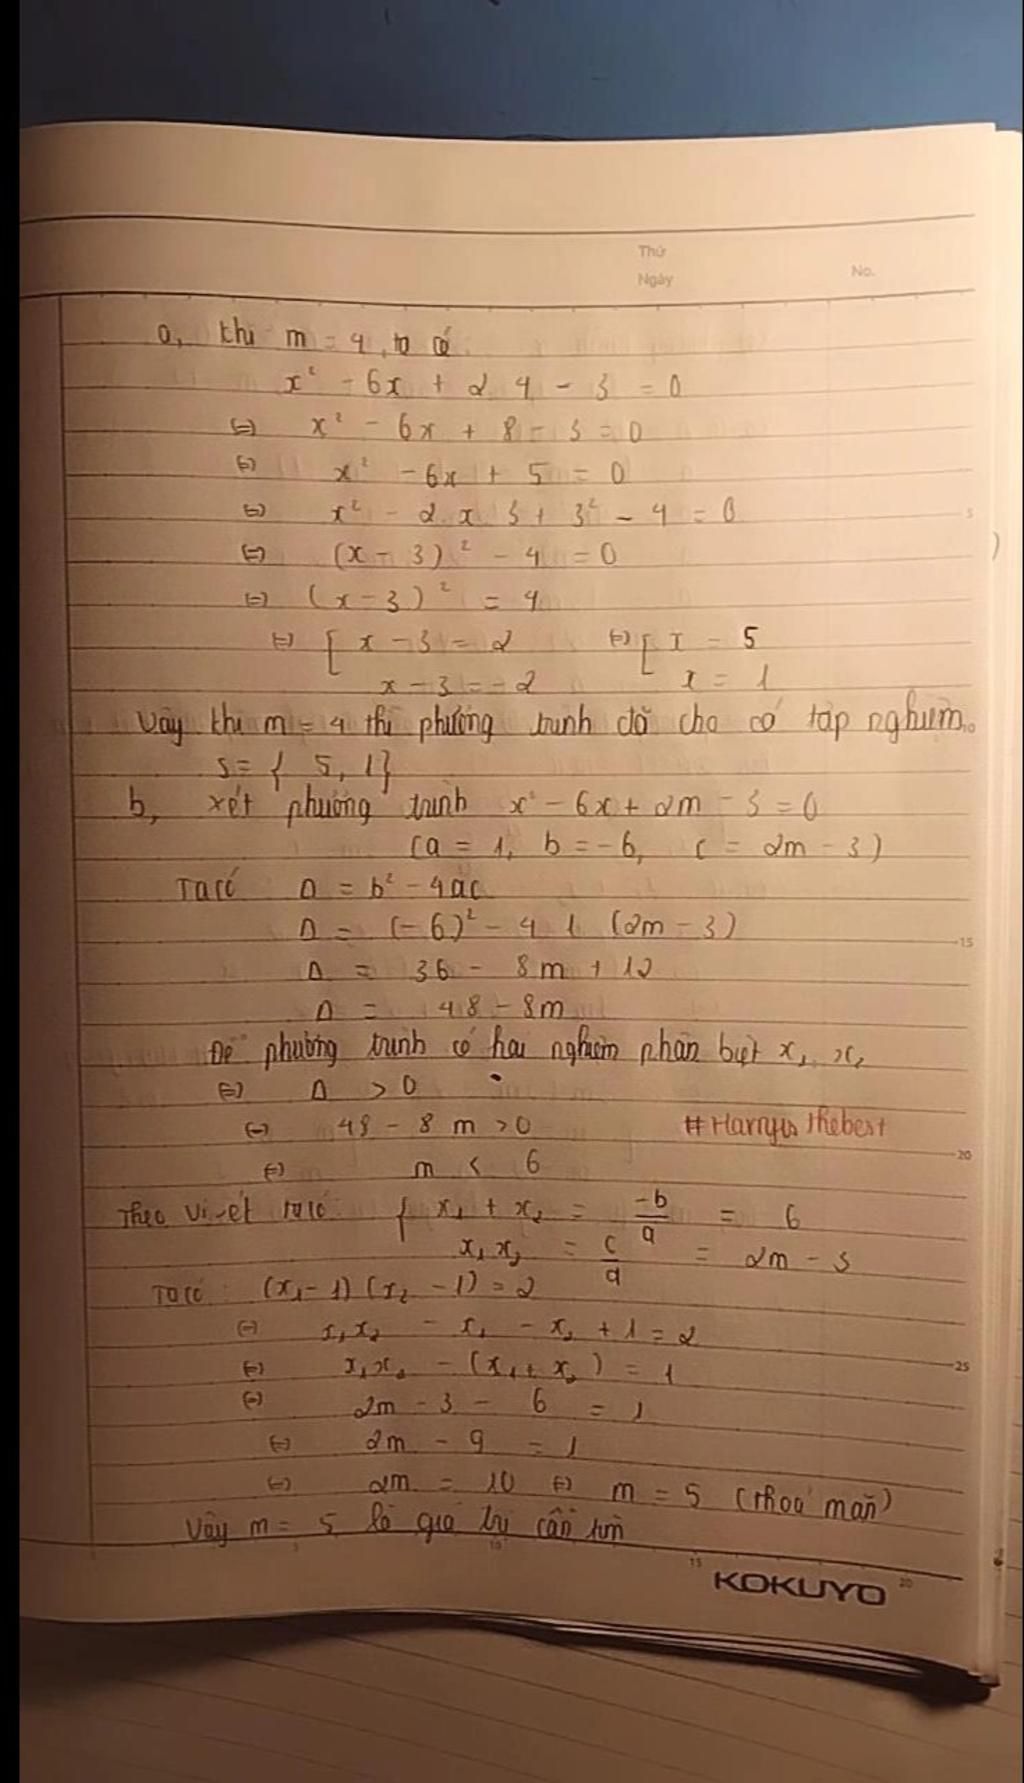 Thứ
Ngày
No.
a, Khi m = 4, ta có:
x² - 6x + 2.4 - 3 = 0
(=) x² - 6x + 8 - 3 = 0
(=) x² - 6x + 5 = 0
(=) x² - 2.x.3 + 3² - 4 = 0
(=) (x - 3)² - 4 = 0
(=) (x - 3)² = 4
(=) [ x - 3 = 2 (=) [ x = 5
x - 3 = -2 x = 1
Vậy khi m = 4 thì phương trình đã cho có tập nghiệm
S = { 5, 1}
b, xét phương trình x² - 6x + 2m - 3 = 0
(a = 1, b = -6, c = 2m - 3)
Ta có Δ = b² - 4ac
Δ = (-6)² - 4.1.(2m - 3)
Δ = 36 - 8m + 12
Δ = 48 - 8m
Để phương trình có hai nghiệm phân biệt x₁, x₂
(=) Δ > 0
(=) 48 - 8m > 0 #Harryisthebest
(=) m < 6
Theo Vi-ét ta có: { x₁ + x₂ = -b/a = 6
x₁x₂ = c/a = 2m - 3
Ta có: (x₁ - 1)(x₂ - 1) = 2
(=) x₁x₂ - x₁ - x₂ + 1 = 2
(=) x₁x₂ - (x₁ + x₂) = 1
(=) 2m - 3 - 6 = 1
(=) 2m - 9 = 1
(=) 2m = 10 (=) m = 5 (thoả mãn)
Vậy m = 5 là giá trị cần tìm
5
10
15
20
25
5
10
15
20
KOKUYO